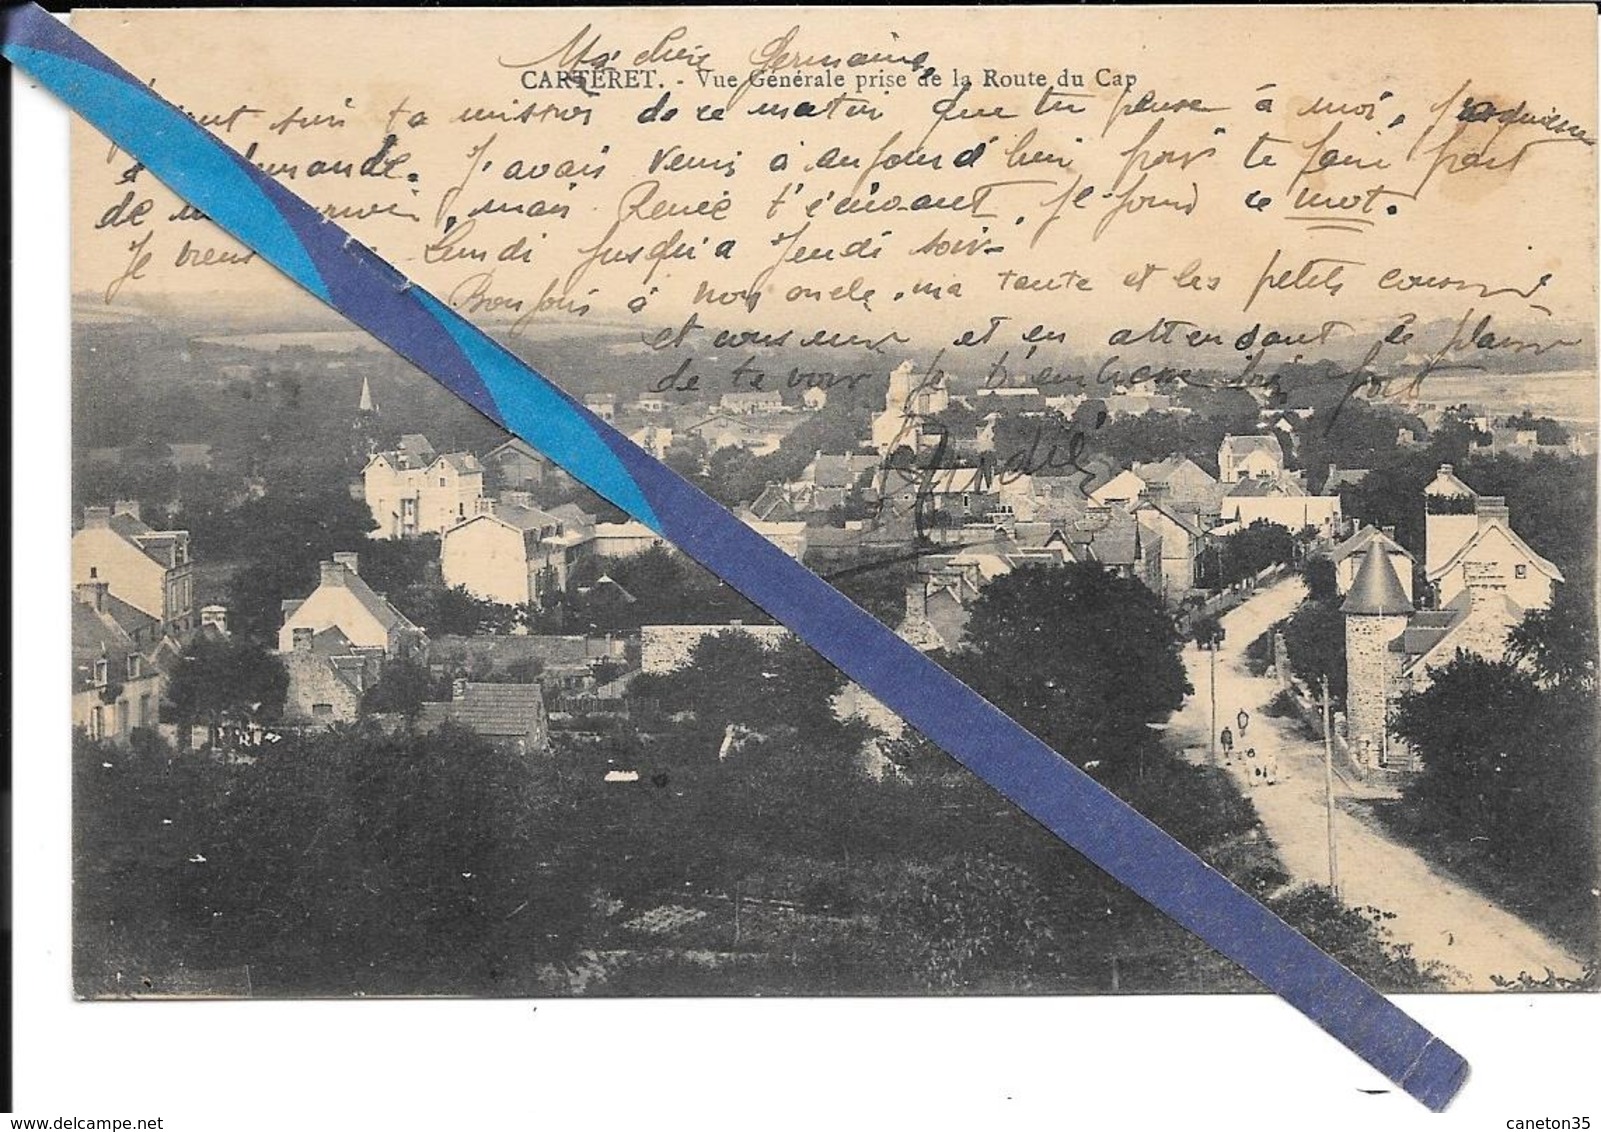 Ma chère Germaine,
CARTERET. - Vue Générale prise de la Route du Cap
ta de ce matin que tu pense à moi,
J'avais venir à aujourd'hui pour te faire part
de mais Renée t'écivant, je joind ce mot.
Je viens Lundi jusqu'a Jeudi soir.
Bonjour à mon oncle, ma tante et les petits cousins
et cousines et en attendant le plaisir
de te voir je t'embrasse bien fort
Andrée
caneton35
delcampe.net